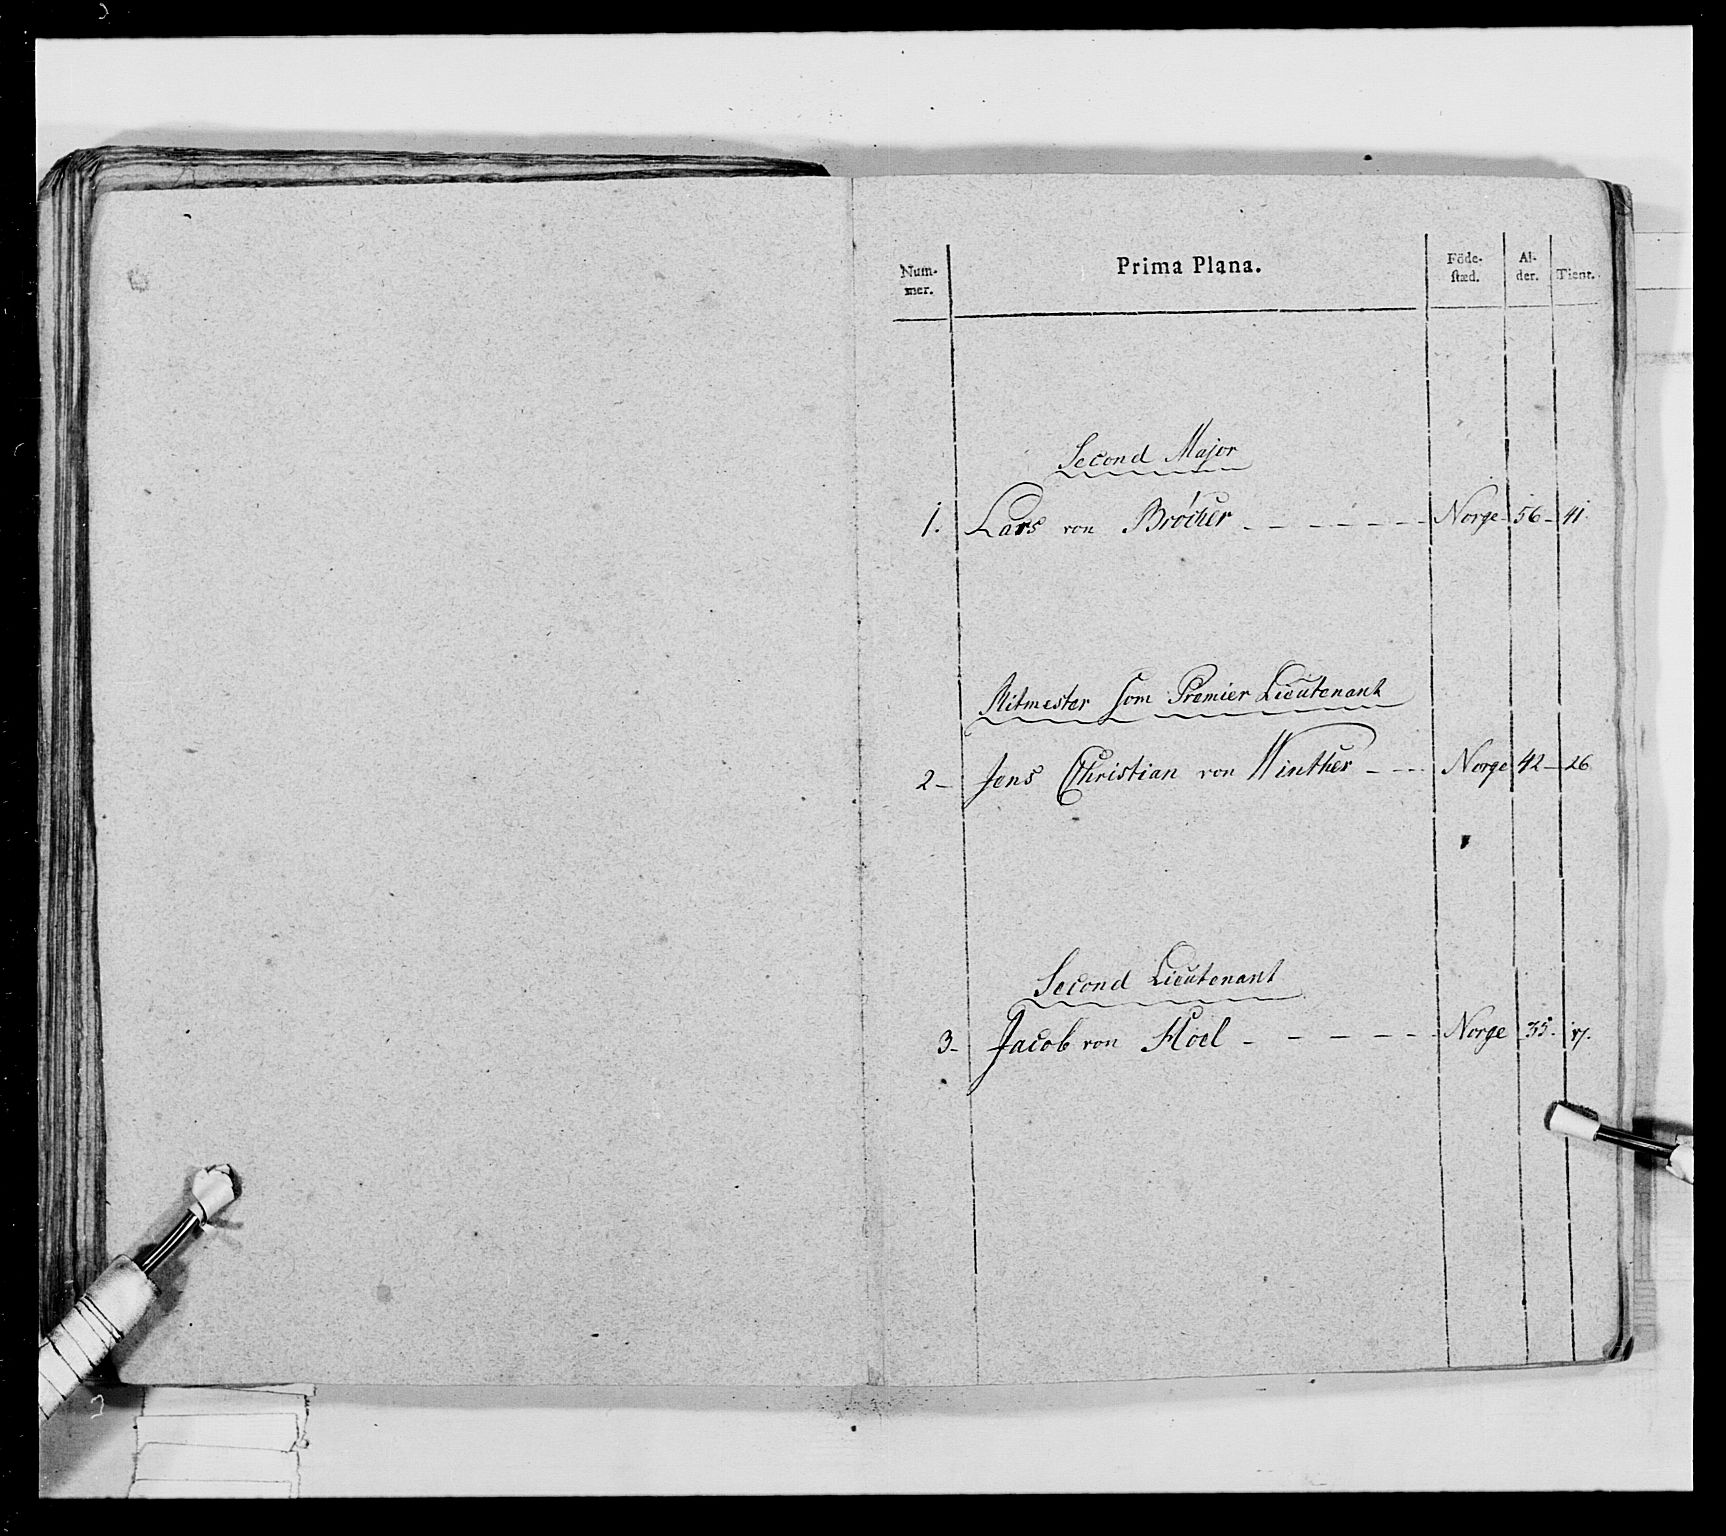 Num-
mer.
Prima Plana.
Föde-
ſtæd.
Al-
der.
Tient.
Second Major
1. Lars von Bröcher - - - - - Norge - 56 - 41.
Ritmester som Premier Lieutenant
2 - Jens Christian von Winther - - - Norge 42 - 26
Second Lieutenant
3 - Jacob von Hoel - - - - - Norge 35 - 17.